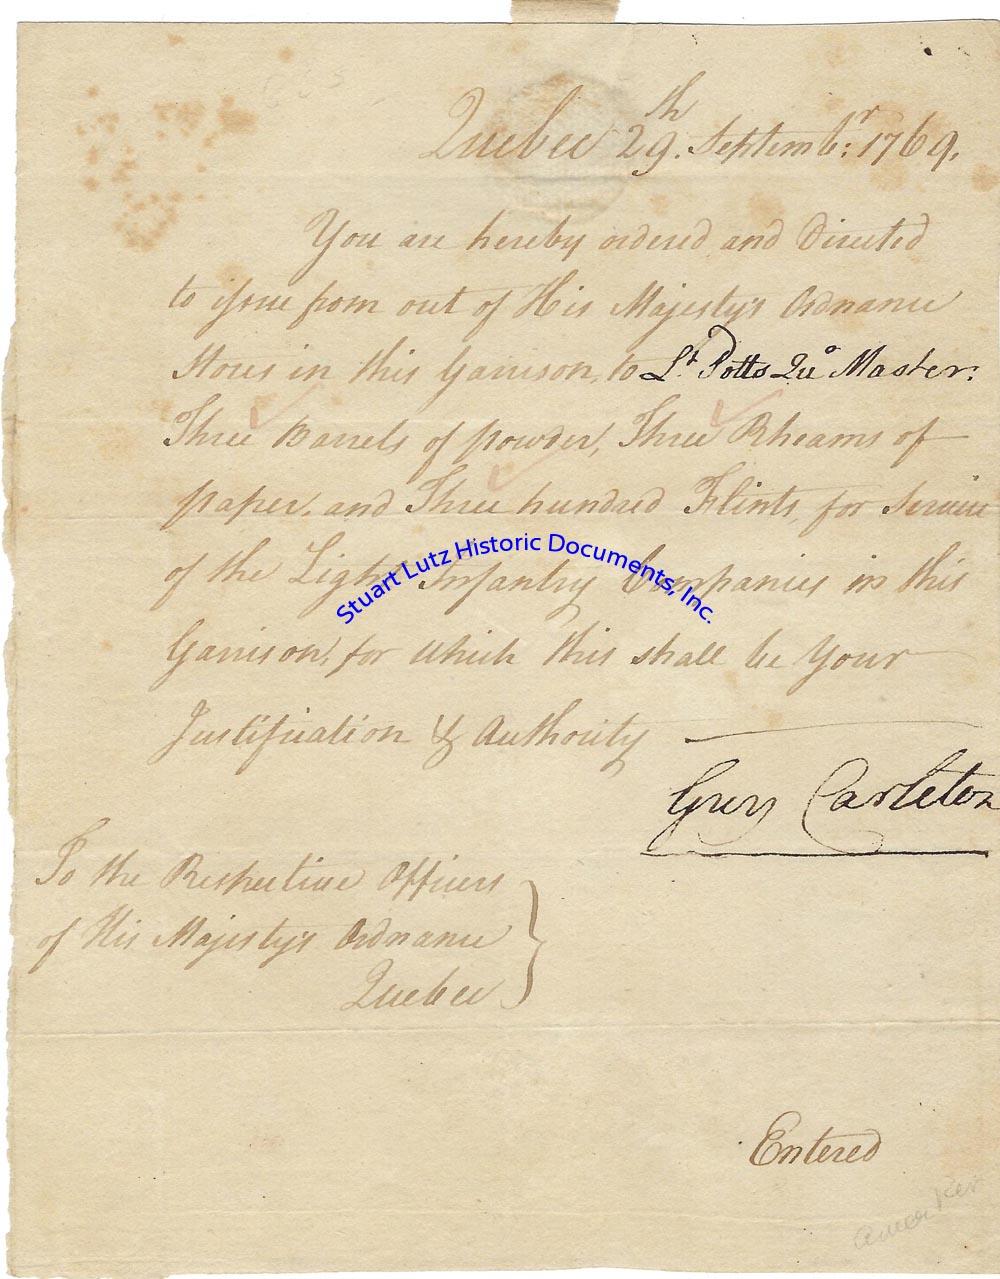 Quebec 29th. Septembr: 1769.
You are hereby ordered and Directed
to issue from out of His Majesty's Ordnance
Stores in this Garrison, to Lt. Potts Qr. Master:
Three Barrels of powder, Three Rheams of
paper, and Three hundred Flints, for Service
of the Light Infantry Companies in this
Garrison, for which this shall be Your
Justification & Authority
Guy Carleton
To the Respective Officers
of His Majesty's Ordnance
Quebec
Entered
Amer Rev
Stuart Lutz Historic Documents, Inc.